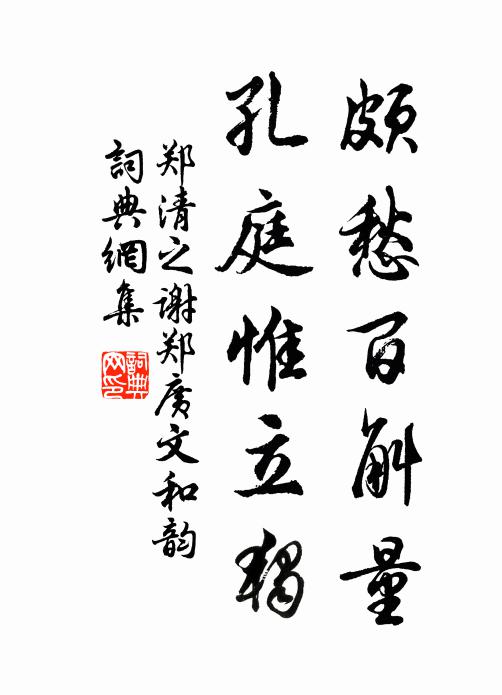 颇愁百斛量
孔庭惟立独
郑清之谢郑广文和韵
詞典網集
詞典网印